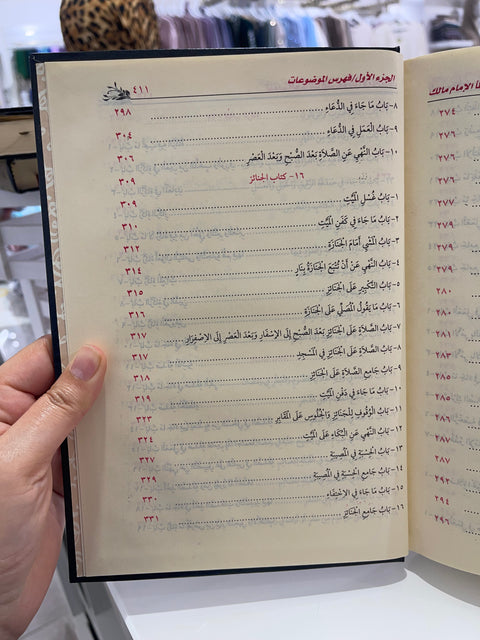 الجزء الأول/فهرس الموضوعات ٤١١
٨- بَابُ مَا جَاءَ فِي الدُّعَاءِ ٢٩٨
٩- بَابُ الْعَمَلِ فِي الدُّعَاءِ ٣٠٤
١٠- بَابُ النَّهْيِ عَنِ الصَّلَاةِ بَعْدَ الصُّبْحِ وَبَعْدَ الْعَصْرِ ٣٠٦
١٦- كتاب الجنائز ٣٠٩
١- بَابُ غُسْلِ الْمَيِّتِ ٣٠٩
٢- بَابُ مَا جَاءَ فِي كَفَنِ الْمَيِّتِ ٣١٠
٣- بَابُ الْمَشْيِ أَمَامَ الْجَنَازَةِ ٣١٢
٤- بَابُ النَّهْيِ عَنْ أَنْ تُتْبَعَ الْجَنَازَةُ بِنَارٍ ٣١٤
٥- بَابُ التَّكْبِيرِ عَلَى الْجَنَائِزِ ٣١٥
٦- بَابُ مَا يَقُولُ الْمُصَلِّي عَلَى الْجَنَازَةِ ٣١٦
٧- بَابُ الصَّلَاةِ عَلَى الْجَنَائِزِ بَعْدَ الصُّبْحِ إِلَى الْإِسْفَارِ وَبَعْدَ الْعَصْرِ إِلَى الْاِصْفِرَارِ ٣١٧
٨- بَابُ الصَّلَاةِ عَلَى الْجَنَائِزِ فِي الْمَسْجِدِ ٣١٧
٩- بَابُ جَامِعِ الصَّلَاةِ عَلَى الْجَنَائِزِ ٣١٨
١٠- بَابُ مَا جَاءَ فِي دَفْنِ الْمَيِّتِ ٣١٩
١١- بَابُ الْوُقُوفِ لِلْجَنَائِزِ وَالْجُلُوسِ عَلَى الْمَقَابِرِ ٣٢٣
١٢- بَابُ النَّهْيِ عَنِ الْبُكَاءِ عَلَى الْمَيِّتِ ٣٢٤
١٣- بَابُ الْحِسْبَةِ فِي الْمُصِيبَةِ ٣٢٧
١٤- بَابُ جَامِعِ الْحِسْبَةِ فِي الْمُصِيبَةِ ٣٢٩
١٥- بَابُ مَا جَاءَ فِي الْاِخْتِفَاءِ ٣٣٠
١٦- بَابُ جَامِعِ الْجَنَائِزِ ٣٣١
الإمام مالك
٢٧٤
٢٧٦
٢٧٦
٢٧٦
٢٧٧
٢٧٩
٢٧٩
٢٧٩
٢٨٠
٢٨٠
٢٨١
٢٨٣
٢٨٥
٢٨٥
٢٨٦
٢٨٧
٢٨٧
٢٩٢
٢٩٤
٢٩٦